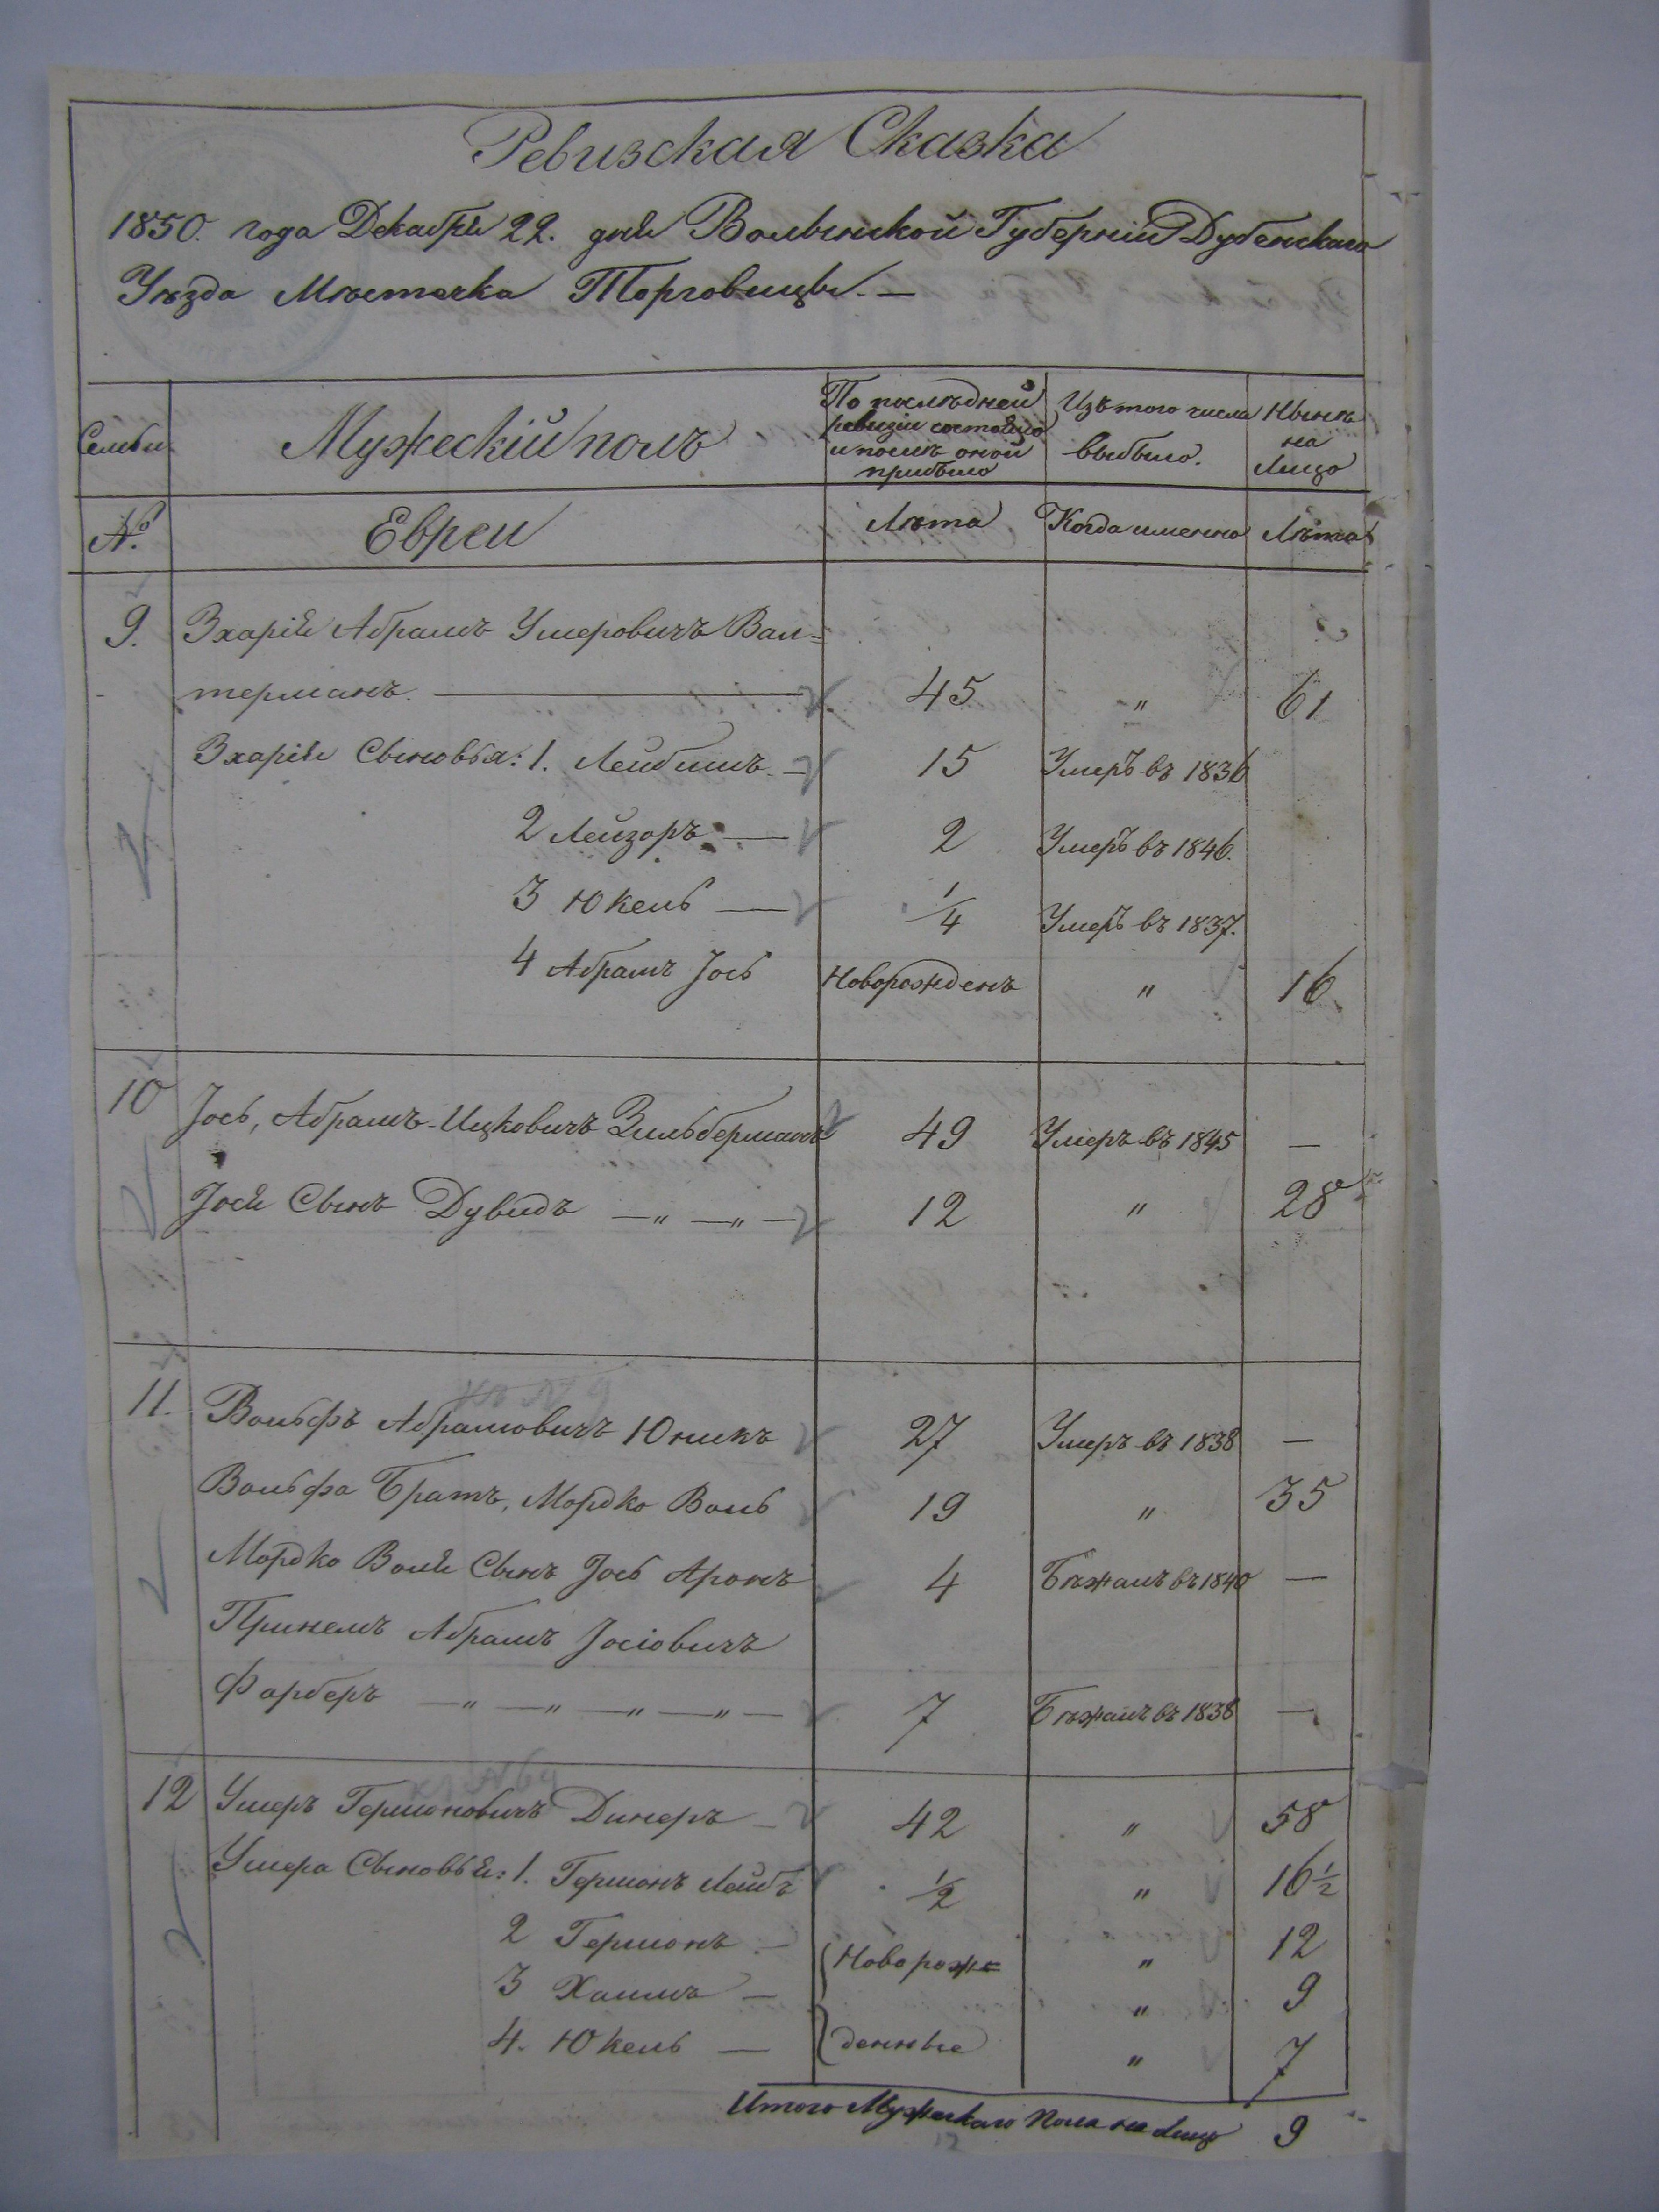 Ревизская Сказка
1850. года Декабря 22. дня Волынской Губерніи Дубенскаго
Уѣзда Мѣстечка Торговицы. —
Семьи
Мужескій полъ
По послѣдней
ревизіи состояло
и послѣ оной
прибыло
Изъ того числа
выбыло.
Нынѣ
на
Лицо
№.
Евреи
Лѣта
Когда именно
Лѣта
9. Зхарія Абрамъ Умеровичъ Вал=
терманъ. — 45 " 61
Зхарія Сыновья: 1. Лейбишъ. — 15 Умеръ въ 1836
2 Лейзоръ — 2 Умеръ въ 1846.
3 Юкель — 1/4 Умеръ въ 1837.
4 Абрамъ Іось Новорожденъ " 16
10 Іось, Абрамъ-Ицковичъ Зильберманъ 49 Умеръ въ 1845 —
Іося Сынъ Дувидъ — " — " — 12 " 28
11. Вольфъ Абрамовичъ Юникъ 27 Умеръ въ 1838 —
Вольфа Братъ, Мордко Воль 19 " 35
Мордко Воля Сынъ Іось Аронъ 4 Бѣжалъ въ 1840 —
Абрамъ Іосіовичъ
Фарберъ — " — " — " — " — 7 Бѣжалъ въ 1838 —
12 Умеръ Гершоновичъ Динеръ — 42 " 58
Умера Сыновья: 1. Гершонъ Лейбъ 1/2 " 16 1/2
2 Гершонъ — Новорож= " 12
3 Хаимъ — " 9
4. Юкель — денные " 7
Итого Мужескаго Пола на лицо 9